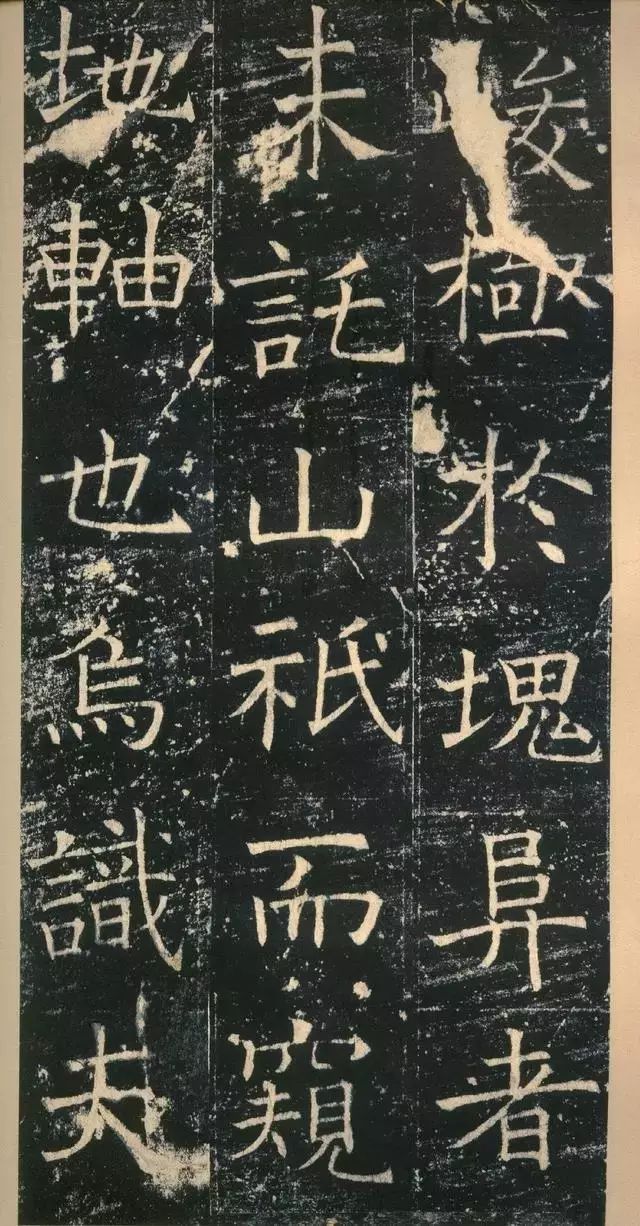 峻極於塊阜者
未託山祇而窺
地軸也焉識夫